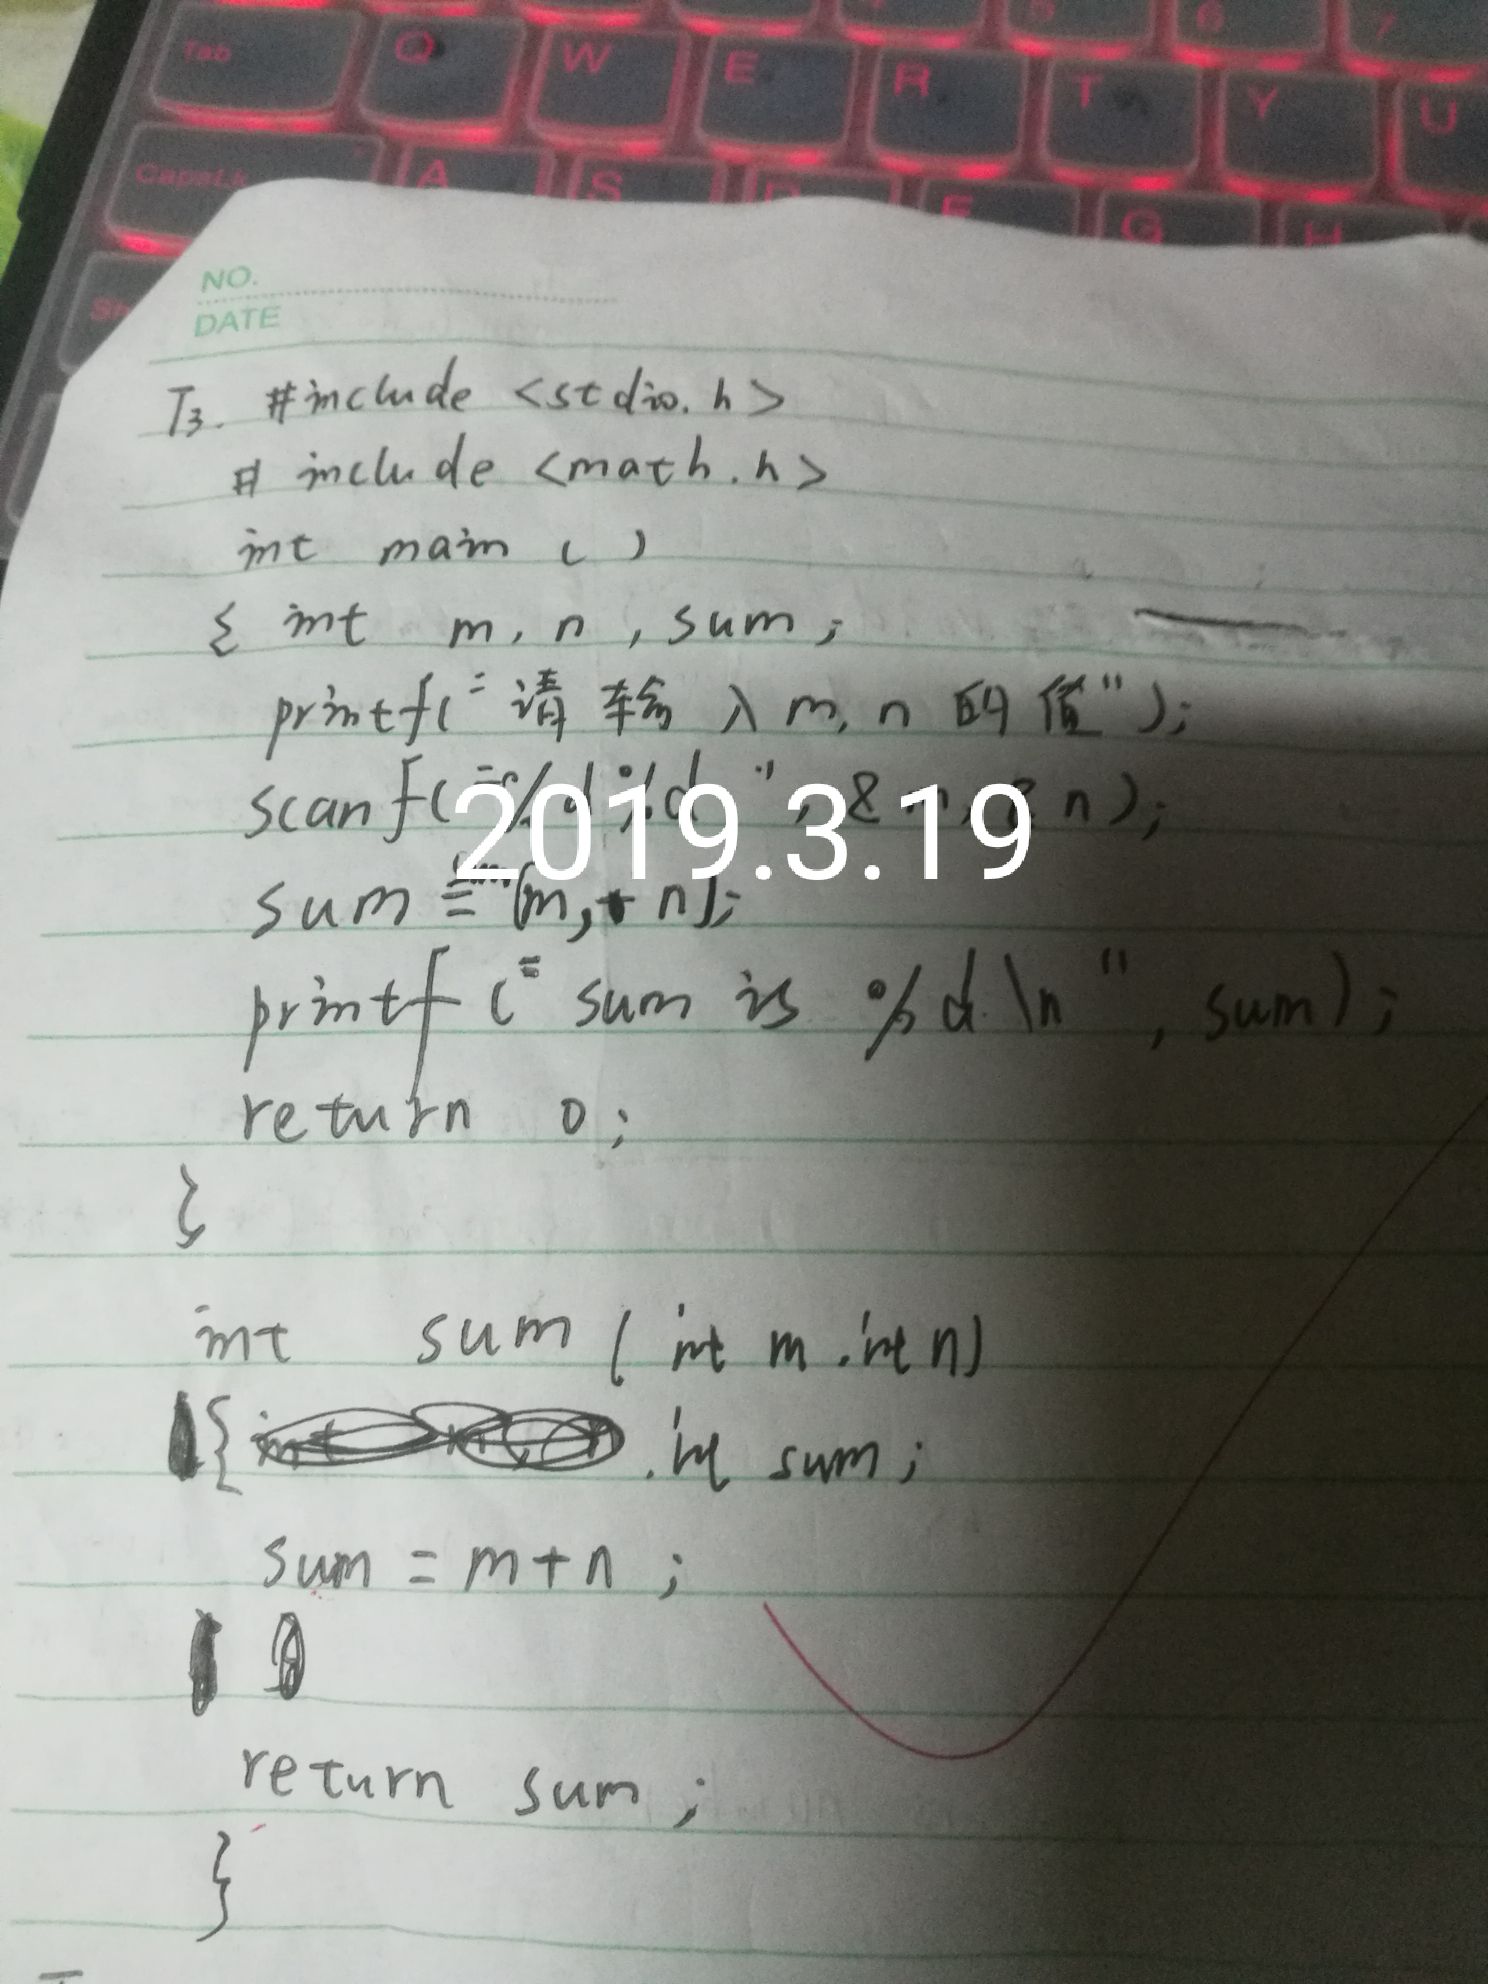 Tab Q W E R T Y U
CapsLk A S D F G H
Sh
NO.
DATE
T3. #include <stdio.h>
# include <math.h>
int main ( )
{ int m, n, sum;
printf("请输入m, n的值");
scanf("%d%d", &m, &n);
2019.3.19
sum = sum(m, n);
printf (" sum is %d\n", sum);
return 0;
}
int sum ( int m, int n)
{ int sum;
sum = m+n ;
return sum ;
}